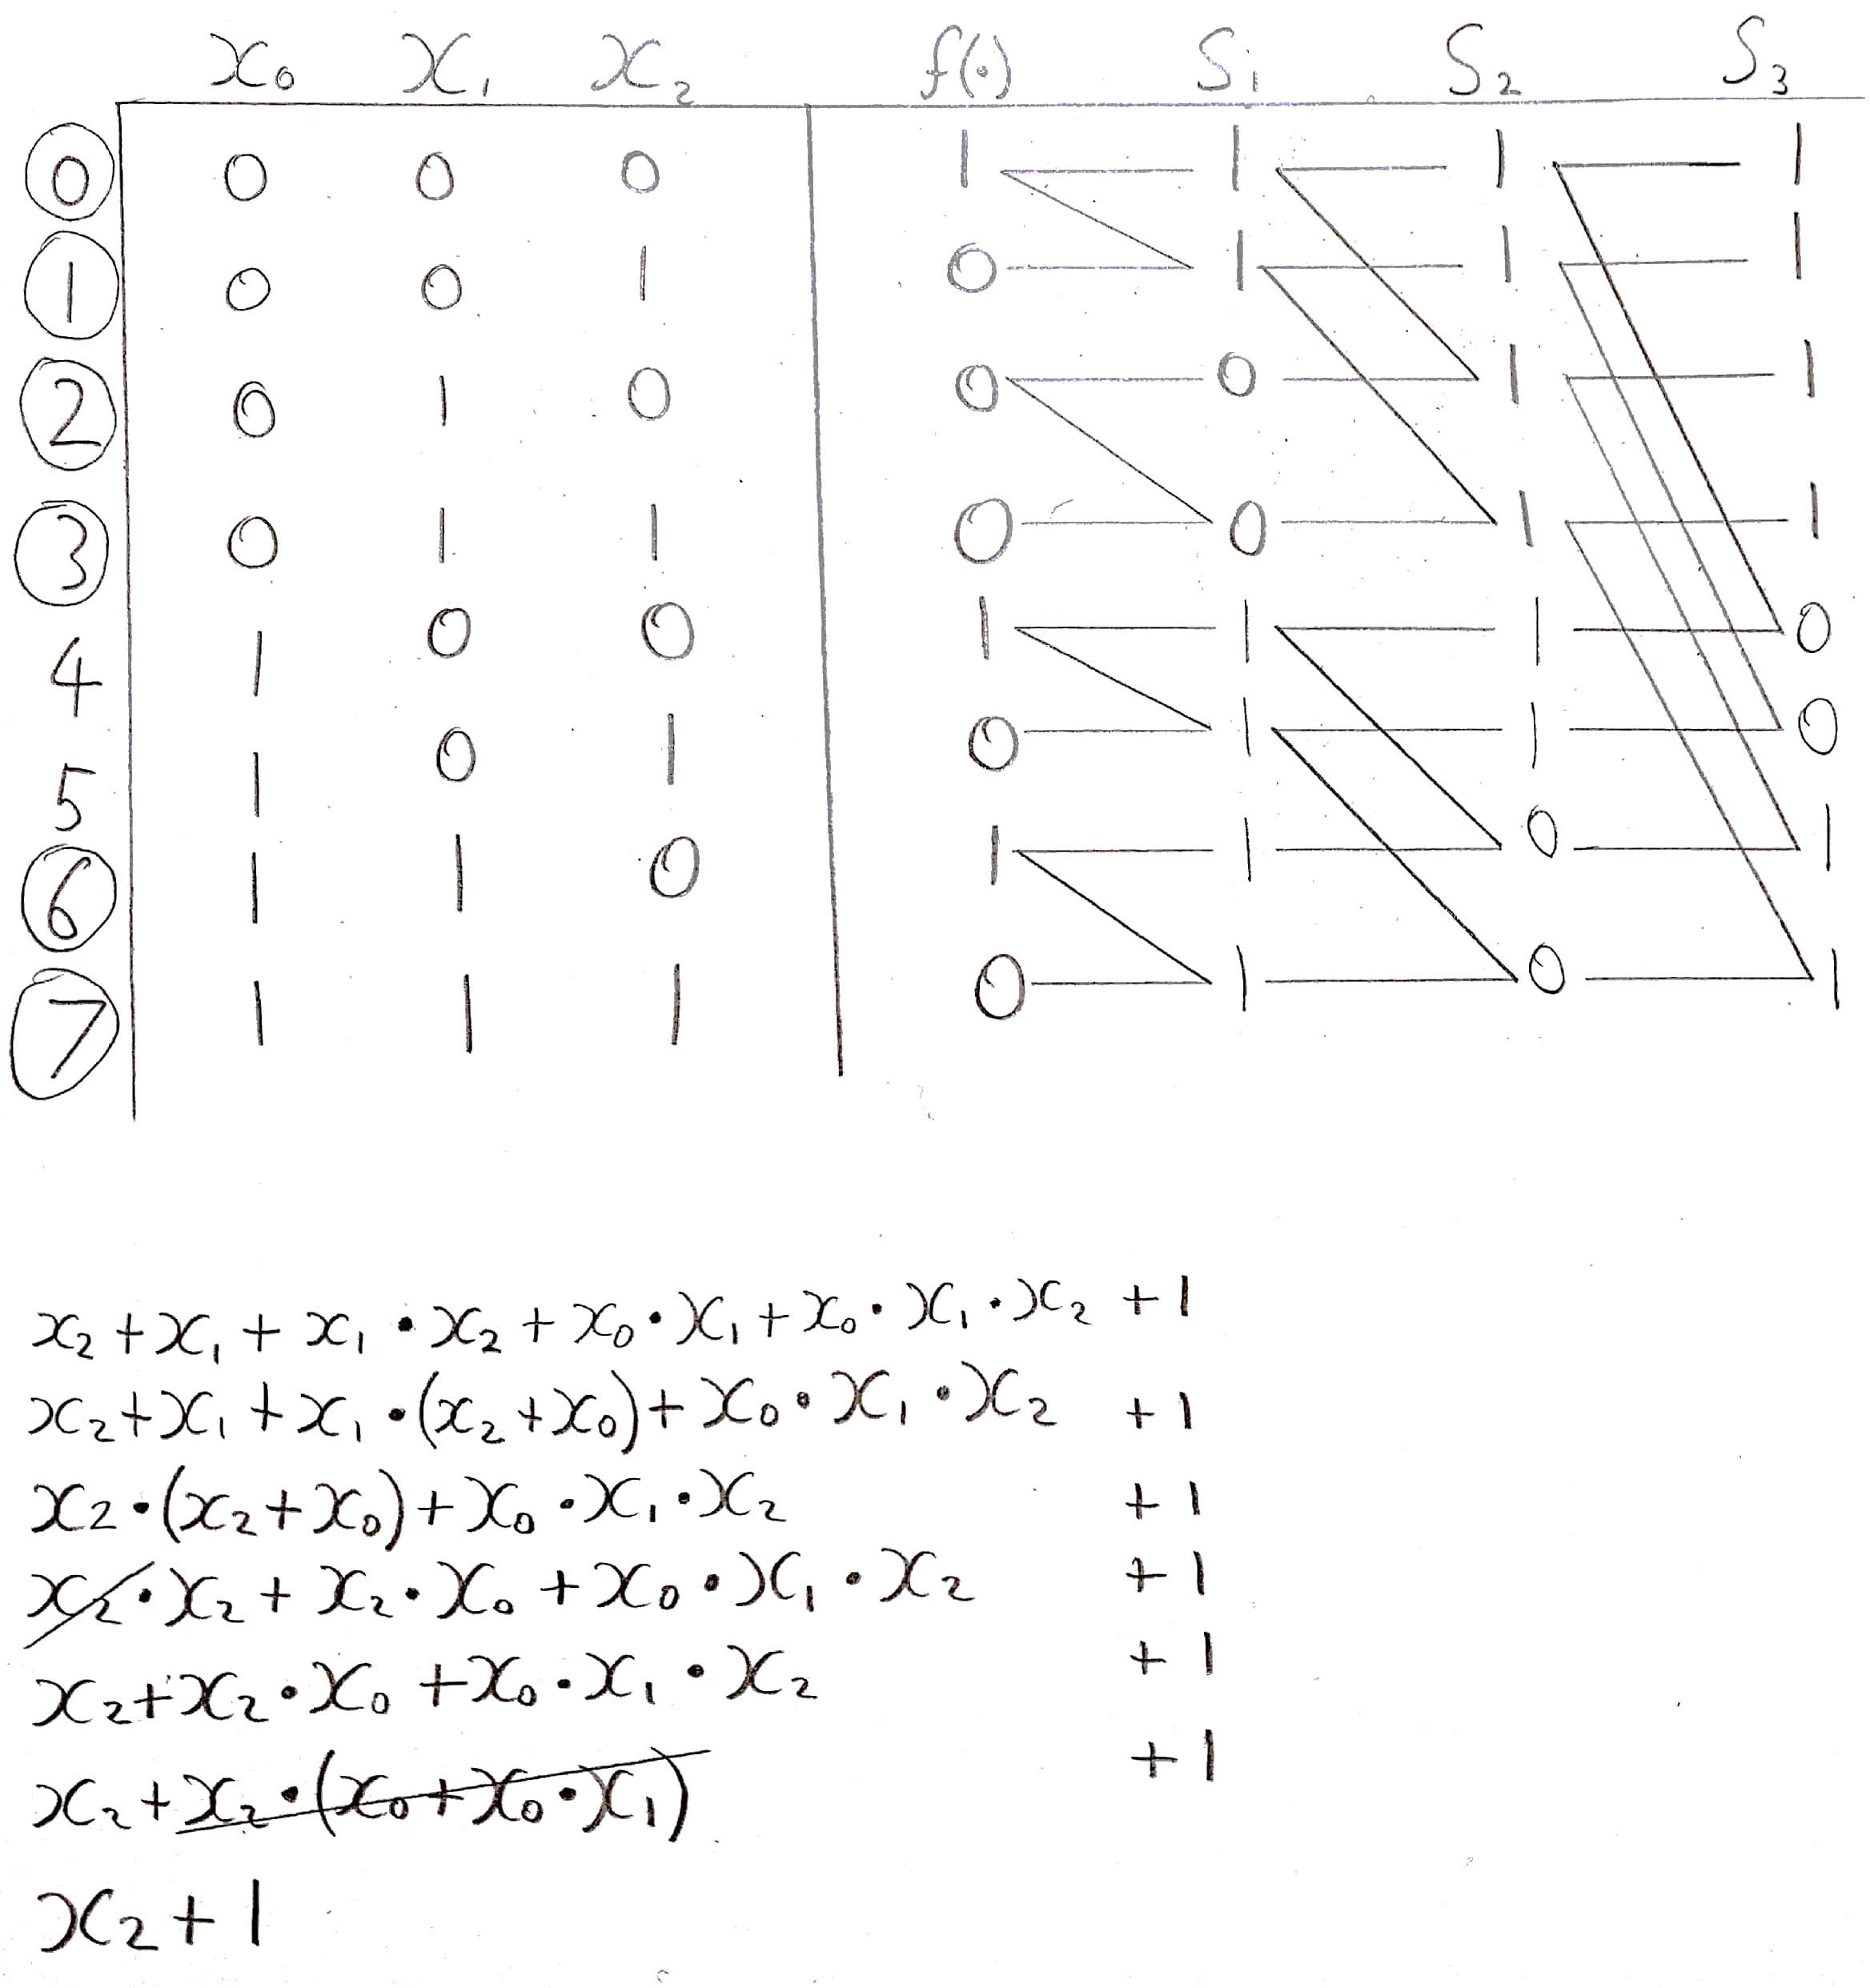 x₀ x₁ x₂ f(·) S₁ S₂ S₃
0 0 0 0 1 1 1 1
1 0 0 1 0 1 1 1
2 0 1 0 0 0 1 1
3 0 1 1 0 0 1 1
4 1 0 0 1 1 1 0
5 1 0 1 0 1 1 0
6 1 1 0 1 1 0 1
7 1 1 1 0 1 0 1
x₂ + x₁ + x₁ · x₂ + x₀ · x₁ + x₀ · x₁ · x₂ + 1
x₂ + x₁ + x₁ · (x₂ + x₀) + x₀ · x₁ · x₂ + 1
x₂ · (x₂ + x₀) + x₀ · x₁ · x₂ + 1
x₂ · x₂ + x₂ · x₀ + x₀ · x₁ · x₂ + 1
x₂ + x₂ · x₀ + x₀ · x₁ · x₂ + 1
x₂ + x₂ · (x₀ + x₀ · x₁) + 1
x₂ + 1